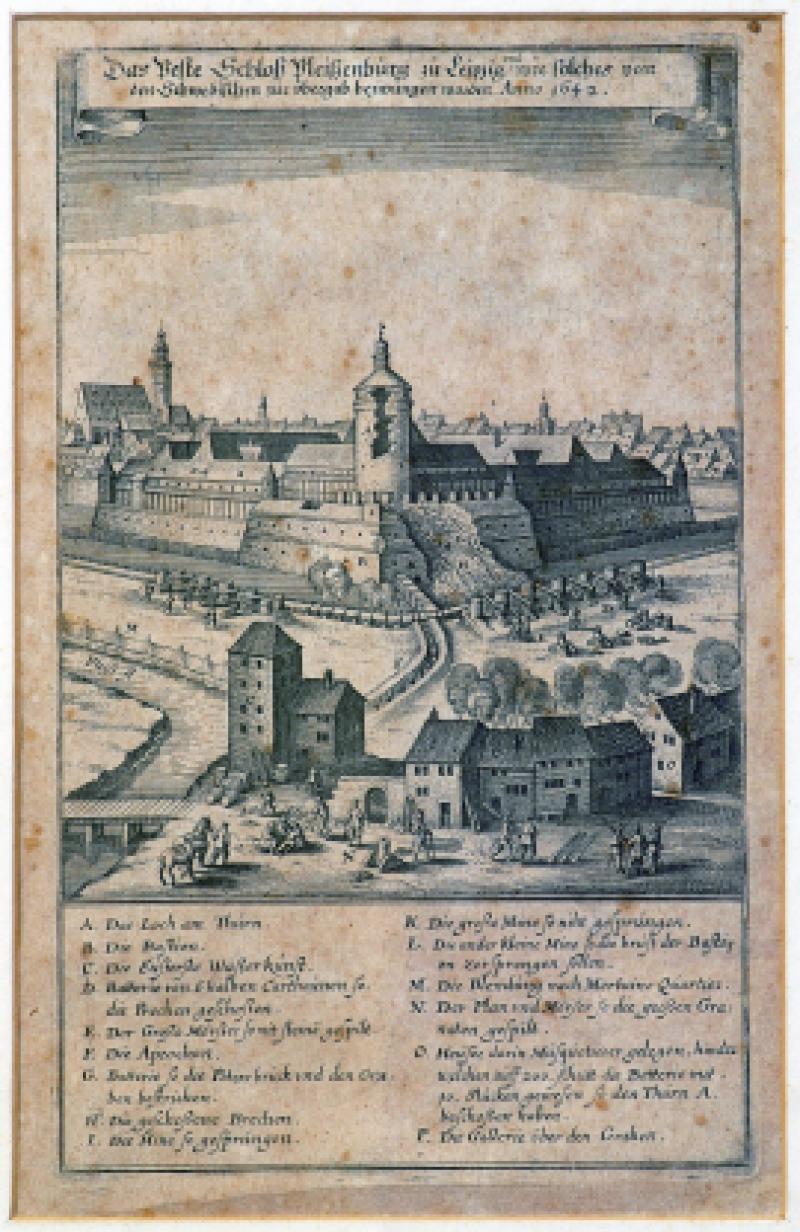 Das Veste Schloß Pleißenburg zu Leipzig wie solches von
den Schwedischen zur übergab bezwungen worden Anno 1642.
A. Das Loch am Thurn.
B. Die Bastion.
C. Die Eüserste Wasserkunst.
D. Batterie von 6 halben Carthaunen so
die Brechen geschossen.
E. Der Große Mörser so mit steine gespilt.
F. Die Aprochen.
G. Batterie so die Pitzerbrück und den Gra:
ben bestrichen.
H. Die geschoßene Brechen.
I. Die Mine so gesprüngen.
K. Die große Mine so nicht gesprüngen.
L. Die ander kleine Mine so die brust der Bastÿ
on zersprengen sollen.
M. Die Blendung nach Mortains Quartier.
N. Der Plan und Mörser so die großen Gra:
naten gespilt.
O. Heuser darin Musquetierer gelegen, hinder
welchen auff 200. schritt die Batterie mit
10. stücken gewesen so den Thurn A.
beschossen haben.
P. Die Gallerie über den Graben.